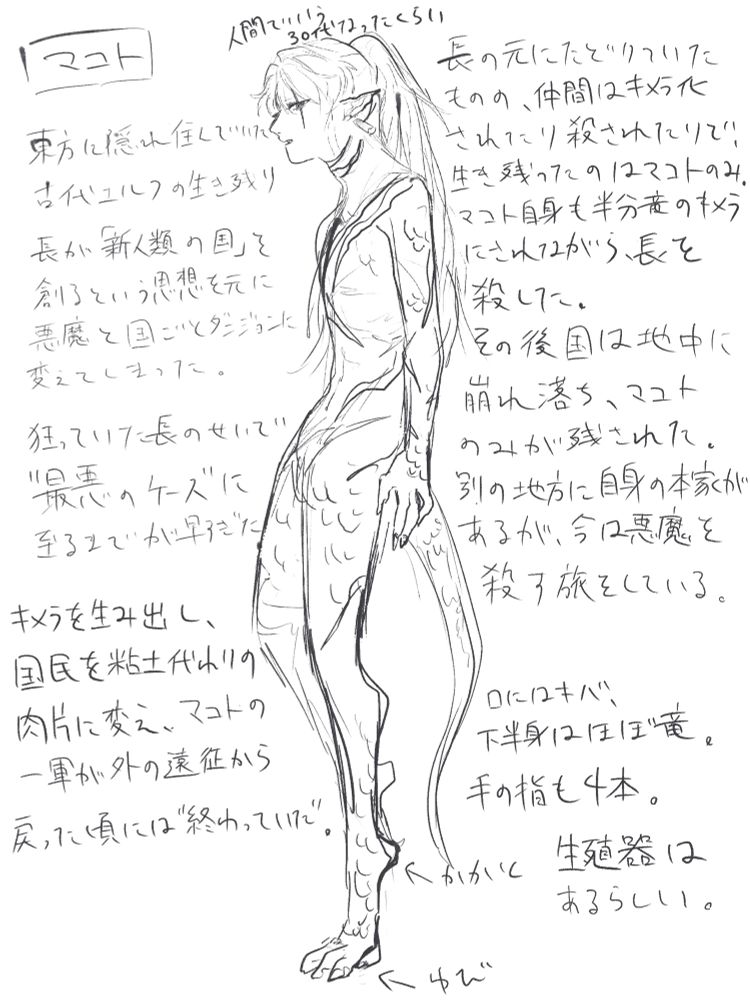 人間でいう
30代なったくらい
マコト
東方に隠れ住んでいた
古代エルフの生き残り
長が「新人類の国」を
創るという思想を元に
悪魔と国ごとダンジョンに
変えてしまった。
狂っていた長のせいで
"最悪のケース"に
至るまでが早すぎた
キメラを生み出し、
国民を粘土代わりの
肉片に変え、マコトの
一軍が外の遠征から
戻った頃には"終わっていた"。
長の元にたどりついた
ものの、仲間はキメラ化
されたり殺されたりで、
生き残ったのはマコトのみ。
マコト自身も半分竜のキメラ
にされながら、長を
殺した。
その後国は地中に
崩れ落ち、マコト
のみが残された。
別の地方に自身の本家が
あるが、今は悪魔を
殺す旅をしている。
口にはキバ、
下半身はほぼ竜。
手の指も4本。
生殖器は
あるらしい。
← かかと
← ゆび